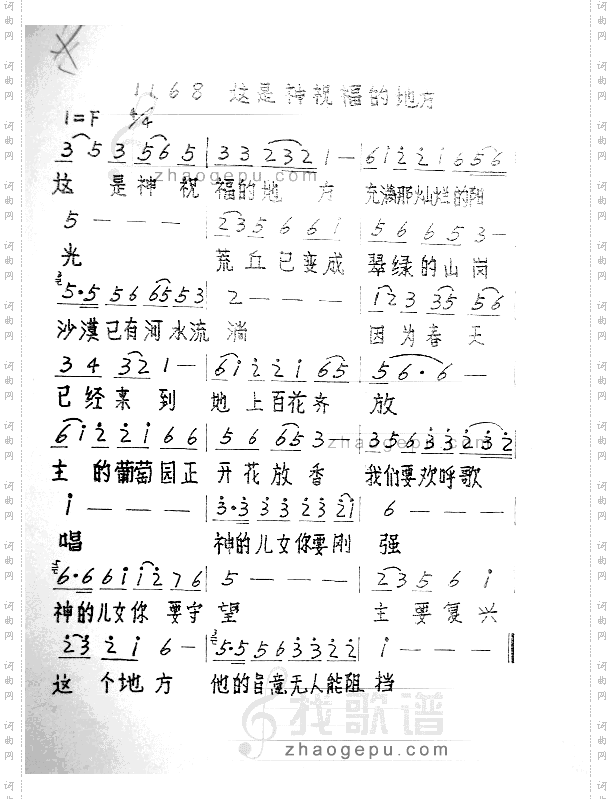 1168 这是神祝福的地方
1=F 4/4
3 5 3 5 6 5 | 3 3 2 3 2 1 - | 6 i 2 2 i 6 5 6
这 是神 祝 福的地 方 充满那灿烂的阳
5 - - - | 2 3 5 6 6 i | 5 6 6 5 3 -
光 荒丘已变成 翠绿的山岗
5·5 5 6 6 5 5 3 | 2 - - - | 1 2 3 3 5 5 6
沙漠已有河水流 淌 因为春天
3 4 3 2 1 - | 6 i 2 2 i 6 5 | 5 6·6 -
已经来到 地上百花齐 放
6 i 2 2 i 6 6 | 5 6 6 5 3 - | 3 5 6 3 3 2 3 2
主的葡萄园正 开花放香 我们要欢呼歌
i - - - | 3·3 3 3 2 3 2 i | 6 - - -
唱 神的儿女你要刚 强
6·6 6 i i 2 7 6 | 5 - - - | 2 3 5 6 i
神的儿女你 要守 望 主要复兴
2 3 2 i 6 - | 5·5 5 6 3 3 2 2 | i - - -
这个地方 他的旨意无人能阻 挡
找歌谱
zhaogepu.com
词曲网